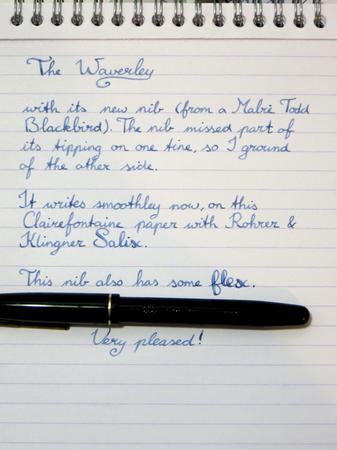 The Waverley
with its new nib (from a Mabie Todd
Blackbird). The nib missed part of
its tipping on one tine, so I ground
of the other side.
It writes smoothley now, on this
Clairefontaine paper with Rohrer &
Klingner Salix.
This nib also has some flex.
Very pleased!